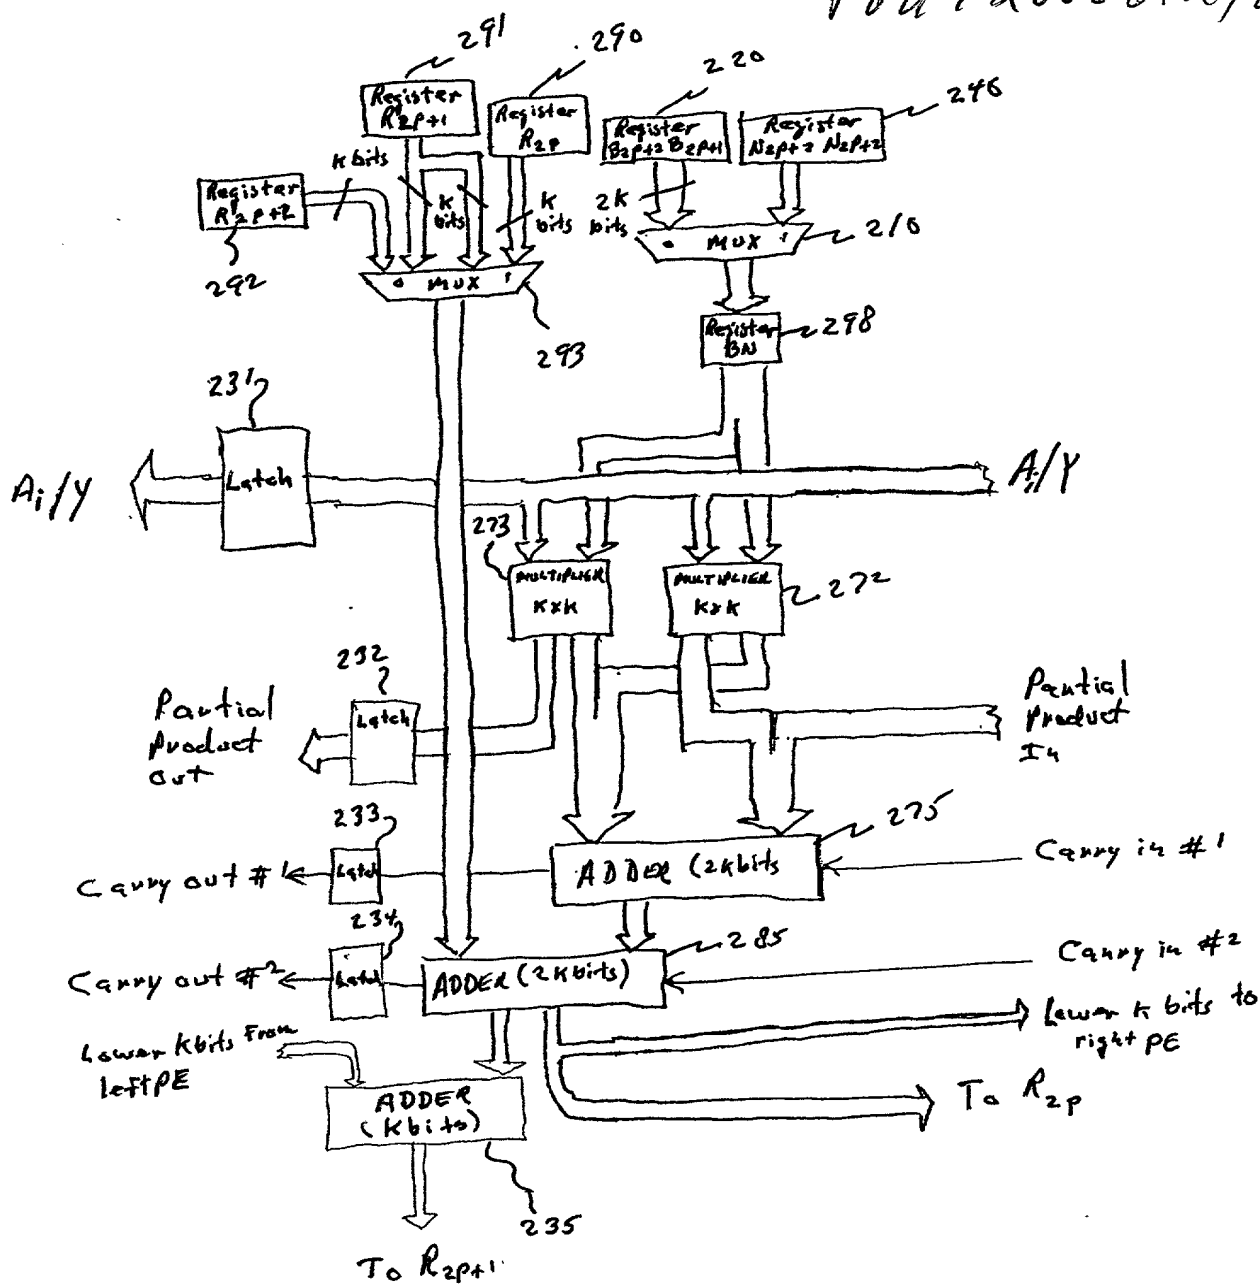 291
290
220
246
Register
R'2p+1
Register
R2p
Register
B2p+2 B2p+1
Register
N2p+2 N2p+2
k bits
Register
R'2p+2
292
k
bits
k
bits
2k
bits
0 MUX 1
210
0 MUX 1
293
Register
BN
298
231
Ai/Y
Latch
Ai/Y
273
MULTIPLIER
K x K
MULTIPLIER
K x K
272
232
Latch
Partial
Product
out
Partial
Product
In
233
275
Carry out #1
Latch
ADDER (2k bits
Carry in #1
234
285
Carry out #2
Latch
ADDER (2k bits)
Carry in #2
Lower k bits From
left PE
Lower k bits to
right PE
ADDER
(k bits)
To R2p
235
To R2p+1